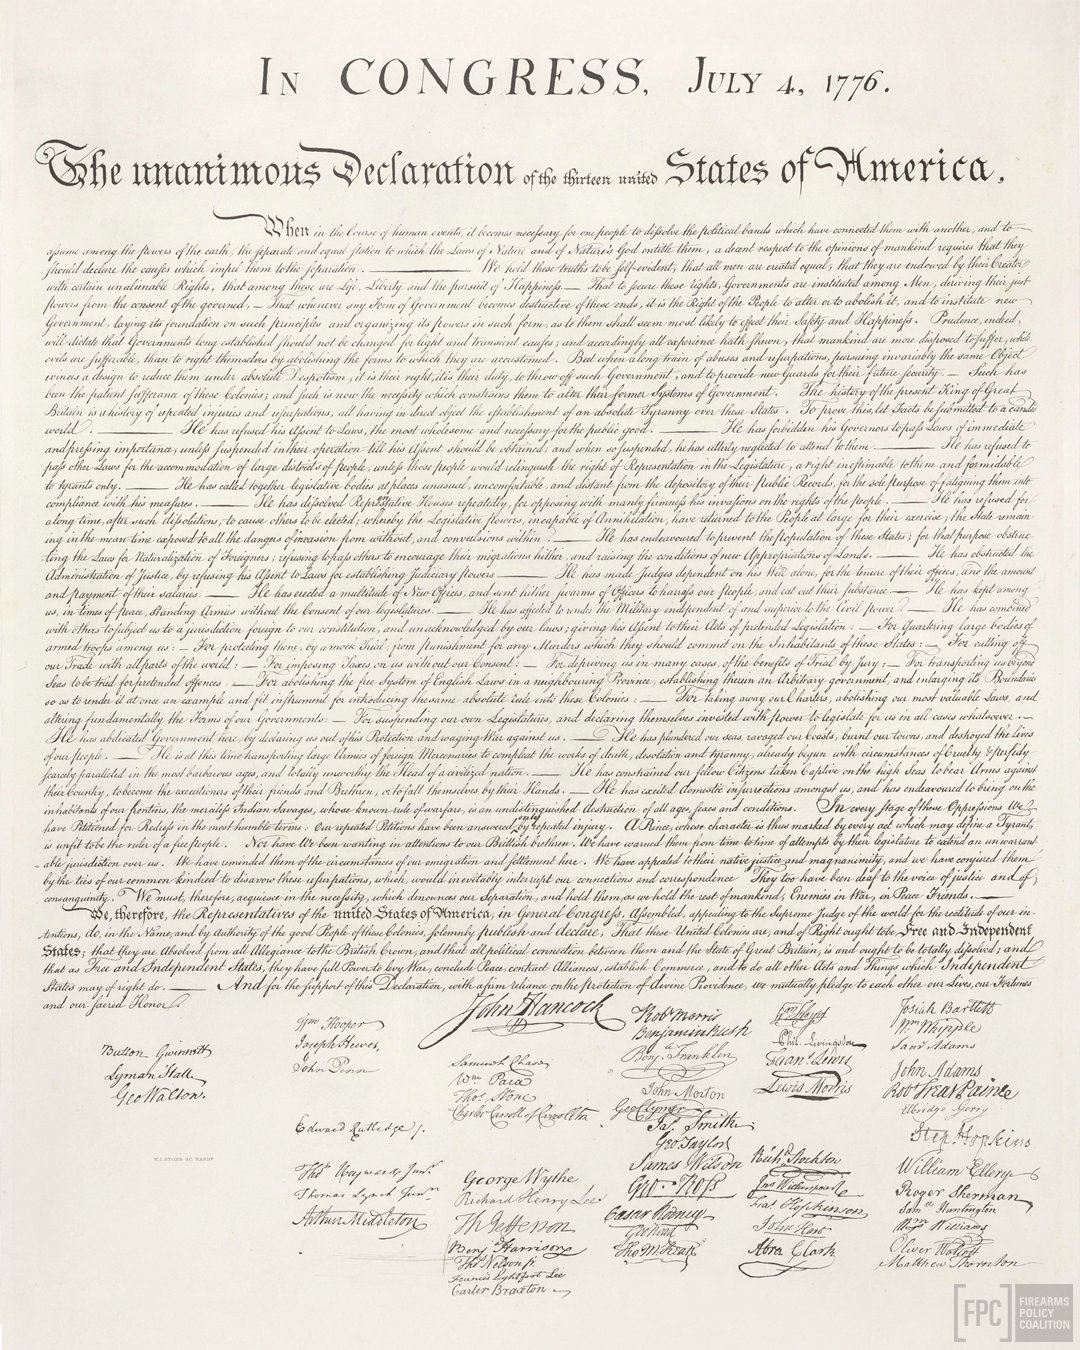 In CONGRESS, July 4, 1776.
The unanimous Declaration of the thirteen united States of America,
When in the Course of human events, it becomes necessary for one people to dissolve the political bands which have connected them with another, and to
assume among the powers of the earth, the separate and equal station to which the Laws of Nature and of Nature's God entitle them, a decent respect to the opinions of mankind requires that they
should declare the causes which impel them to the separation. ——— We hold these truths to be self-evident, that all men are created equal, that they are endowed by their Creator
with certain unalienable Rights, that among these are Life, Liberty and the pursuit of Happiness.— That to secure these rights, Governments are instituted among Men, deriving their just
powers from the consent of the governed, — That whenever any Form of Government becomes destructive of these ends, it is the Right of the People to alter or to abolish it, and to institute new
Government, laying its foundation on such principles and organizing its powers in such form, as to them shall seem most likely to effect their Safety and Happiness. Prudence, indeed,
will dictate that Governments long established should not be changed for light and transient causes; and accordingly all experience hath shewn, that mankind are more disposed to suffer, while
evils are sufferable, than to right themselves by abolishing the forms to which they are accustomed. But when a long train of abuses and usurpations, pursuing invariably the same Object
evinces a design to reduce them under absolute Despotism, it is their right, it is their duty, to throw off such Government, and to provide new Guards for their future security. — Such has
been the patient sufferance of these Colonies; and such is now the necessity which constrains them to alter their former Systems of Government. The history of the present King of Great
Britain is a history of repeated injuries and usurpations, all having in direct object the establishment of an absolute Tyranny over these States. To prove this, let Facts be submitted to a candid
world. ——— He has refused his Assent to Laws, the most wholesome and necessary for the public good. ——— He has forbidden his Governors to pass Laws of immediate
and pressing importance, unless suspended in their operation till his Assent should be obtained; and when so suspended, he has utterly neglected to attend to them. ——— He has refused to
pass other Laws for the accommodation of large districts of people, unless those people would relinquish the right of Representation in the Legislature, a right inestimable to them and formidable
to tyrants only. ——— He has called together legislative bodies at places unusual, uncomfortable, and distant from the depository of their Public Records, for the sole purpose of fatiguing them into
compliance with his measures. ——— He has dissolved Representative Houses repeatedly, for opposing with manly firmness his invasions on the rights of the people. ——— He has refused for
a long time, after such dissolutions, to cause others to be elected; whereby the Legislative powers, incapable of Annihilation, have returned to the People at large for their exercise; the State remain-
ing in the mean time exposed to all the dangers of invasion from without, and convulsions within. ——— He has endeavoured to prevent the population of these States; for that purpose obstruc-
ting the Laws for Naturalization of Foreigners; refusing to pass others to encourage their migrations hither, and raising the conditions of new Appropriations of Lands. ——— He has obstructed the
Administration of Justice, by refusing his Assent to Laws for establishing Judiciary powers. ——— He has made Judges dependent on his Will alone, for the tenure of their offices, and the amount
and payment of their salaries. ——— He has erected a multitude of New Offices, and sent hither swarms of Officers to harrass our people, and eat out their substance. ——— He has kept among
us, in times of peace, Standing Armies without the Consent of our legislatures. ——— He has affected to render the Military independent of and superior to the Civil power. ——— He has combined
with others to subject us to a jurisdiction foreign to our constitution, and unacknowledged by our laws; giving his Assent to their Acts of pretended Legislation: — For Quartering large bodies of
armed troops among us: — For protecting them, by a mock Trial, from punishment for any Murders which they should commit on the Inhabitants of these States: — For cutting off
our Trade with all parts of the world: — For imposing Taxes on us without our Consent: — For depriving us in many cases, of the benefits of Trial by Jury: — For transporting us beyond
Seas to be tried for pretended offences — For abolishing the free System of English Laws in a neighbouring Province, establishing therein an Arbitrary government, and enlarging its Boundaries
so as to render it at once an example and fit instrument for introducing the same absolute rule into these Colonies: — For taking away our Charters, abolishing our most valuable Laws, and
altering fundamentally the Forms of our Governments: — For suspending our own Legislatures, and declaring themselves invested with power to legislate for us in all cases whatsoever. —
He has abdicated Government here, by declaring us out of his Protection and waging War against us. — He has plundered our seas, ravaged our Coasts, burnt our towns, and destroyed the lives
of our people. — He is at this time transporting large Armies of foreign Mercenaries to compleat the works of death, desolation and tyranny, already begun with circumstances of Cruelty & perfidy
scarcely paralleled in the most barbarous ages, and totally unworthy the Head of a civilized nation. — He has constrained our fellow Citizens taken Captive on the high Seas to bear Arms against
their Country, to become the executioners of their friends and Brethren, or to fall themselves by their Hands. — He has excited domestic insurrections amongst us, and has endeavoured to bring on the
inhabitants of our frontiers, the merciless Indian Savages, whose known rule of warfare, is an undistinguished destruction of all ages, sexes and conditions. In every stage of these Oppressions We
have Petitioned for Redress in the most humble terms: Our repeated Petitions have been answered only by repeated injury. A Prince, whose character is thus marked by every act which may define a Tyrant,
is unfit to be the ruler of a free people. Nor have We been wanting in attentions to our Brittish brethren. We have warned them from time to time of attempts by their legislature to extend an unwarrant-
able jurisdiction over us. We have reminded them of the circumstances of our emigration and settlement here. We have appealed to their native justice and magnanimity, and we have conjured them
by the ties of our common kindred to disavow these usurpations, which, would inevitably interrupt our connections and correspondence. They too have been deaf to the voice of justice and of
consanguinity. We must, therefore, acquiesce in the necessity, which denounces our Separation, and hold them, as we hold the rest of mankind, Enemies in War, in Peace Friends. —
We, therefore, the Representatives of the united States of America, in General Congress, Assembled, appealing to the Supreme Judge of the world for the rectitude of our in-
tentions, do, in the Name, and by Authority of the good People of these Colonies, solemnly publish and declare, That these United Colonies are, and of Right ought to be Free and Independent
States; that they are Absolved from all Allegiance to the British Crown, and that all political connection between them and the State of Great Britain, is and ought to be totally dissolved; and
that as Free and Independent States, they have full Power to levy War, conclude Peace, contract Alliances, establish Commerce, and to do all other Acts and Things which Independent
States may of right do. ——— And for the support of this Declaration, with a firm reliance on the protection of divine Providence, we mutually pledge to each other our Lives, our Fortunes
and our sacred Honor.
Button Gwinnett
Lyman Hall
Geo Walton.
Wm Hooper
Joseph Hewes,
John Penn
Edward Rutledge /.
Thos Heyward Junr.
Thomas Lynch Junr.
Arthur Middleton
John Hancock
Samuel Chase
Wm Paca
Thos Stone
Charles Carroll of Carrollton
George Wythe
Richard Henry Lee
Th Jefferson
Benja Harrison
Thos Nelson jr.
Francis Lightfoot Lee
Carter Braxton
Robt Morris
Benjamin Rush
Benja Franklin
John Morton
Geo Clymer
Jas. Smith
Geo. Taylor
James Wilson
Geo. Ross
Caesar Rodney
Geo Read
Tho M:Kean
Wm Floyd
Phil. Livingston
Frans. Lewis
Lewis Morris
Richd. Stockton
Jno Witherspoon
Fras. Hopkinson
John Hart
Abra Clark
Josiah Bartlett
Wm Whipple
Saml Adams
John Adams
Robt Treat Paine
Elbridge Gerry
Step. Hopkins
William Ellery
Roger Sherman
Saml Huntington
Wm Williams
Oliver Wolcott
Matthew Thornton
W. J. STONE SC. WASHN
FPC
FIREARMS
POLICY
COALITION